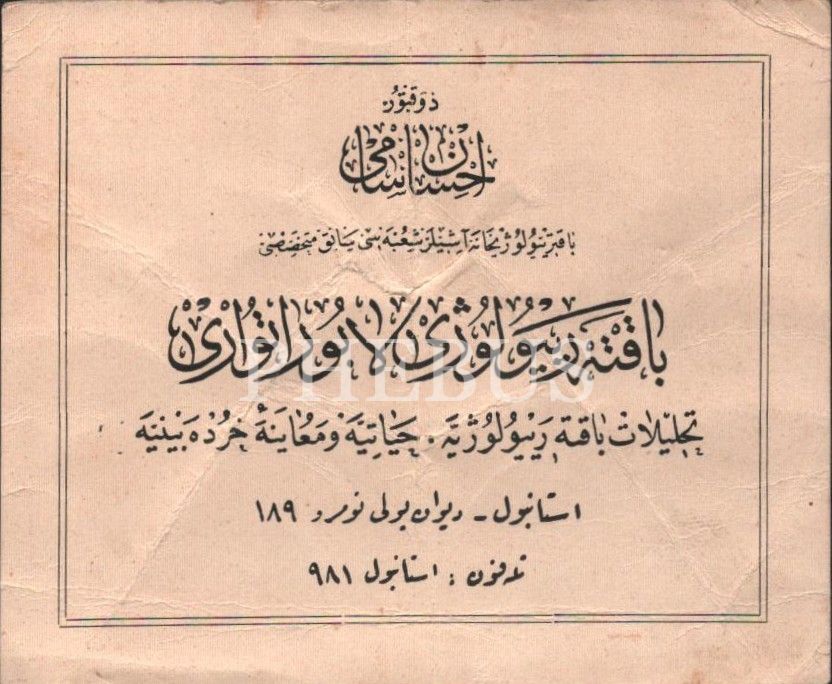 دوقتور
احسان سامی
باقتریولوژیخانه آشیلر شعبه سی سابق متخصصی
باقته ریولوژی لابوراتواری
تحلیلات باقته ریولوژیه، حیاتیه و معاینهٔ خرده بینیه
استانبول - دیوان یولی نومرو ١٨٩
تلفون : استانبول ٩٨١
PHEBUS